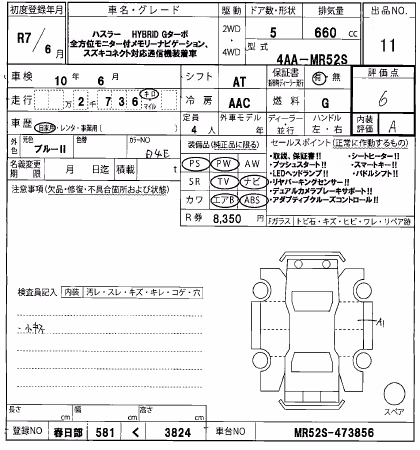 初度登録年月 車名・グレード 駆動 ドア数・形状 排気量 出品NO
R7/6月 ハスラー HYBRID Gターボ 2WD 5 660 cc 11
全方位モニター付メモリーナビゲーション、
スズキコネクト対応通信機装着車 4WD 型式 4AA-MR52S
車検 10年 6月 シフト AT 保証書 有・無 評価点
走行 万 2千 7 3 6 キロ マイル 冷房 AAC 燃料 G 6
車歴 自家用・レンタ・事業用( ) 定員 4人 外車モデル 年 ディーラー・並行 ハンドル 左・右 内装評価 A
外色 元色 ブルーII カラーNO 装備品(純正品に限る) セールスポイント(正常に作動するもの)
名義変更期限 月 日迄 積載 t PS PW AW
・取説、保証書!! ・シートヒーター!!
・プッシュスタート!! ・スマートキー!!
・LEDヘッドランプ!! ・パドルシフト!!
注意事項(欠品・修復・不具合箇所および状態) SR TV ナビ
・リヤパーキングセンサー!!
・デュアルカメラブレーキサポート!!
カワ エアB ABS ・アダプティブクルーズコントロール!!
R券 8,350円 Fガラス トビ石・キズ・ヒビ・ワレ・リペア跡
検査員記入 内装 汚レ・スレ・キズ・キレ・コゲ・穴
・小キズ
A1
スペア
長さ cm 幅 cm 高さ cm
登録NO 春日部 581 く 3824 車台NO MR52S-473856